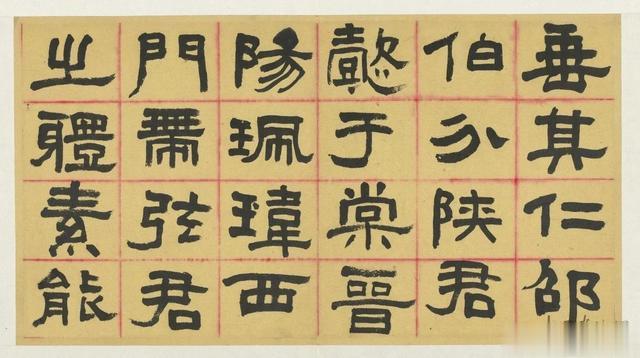 垂其仁邵
伯分陝君
懿于棠晉
陽珮瑋西
門帶弦君
之體素能